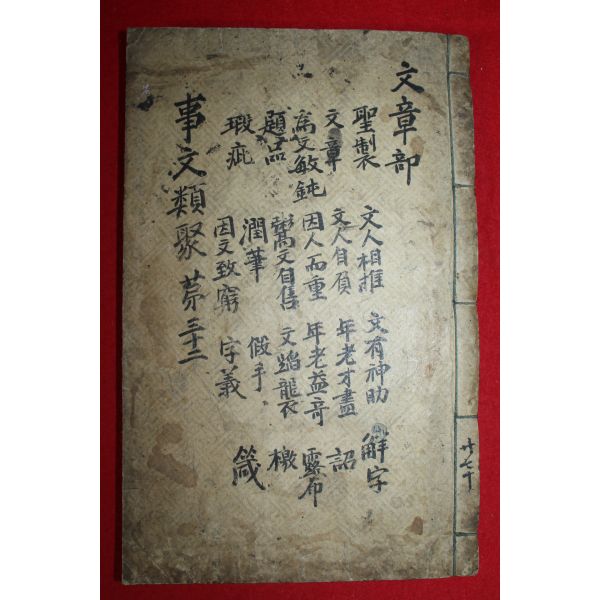 文章部
聖製 文人相推 文有神助 解字
文章 文人自負 年老才盡 詔
為文敏鈍 因人而重 年老益奇 露布
題品 鬻文自售 文蹈襲 檄
瑕疵 潤筆 假手 箴
因文致窮 字義
事文類聚 苐三十二